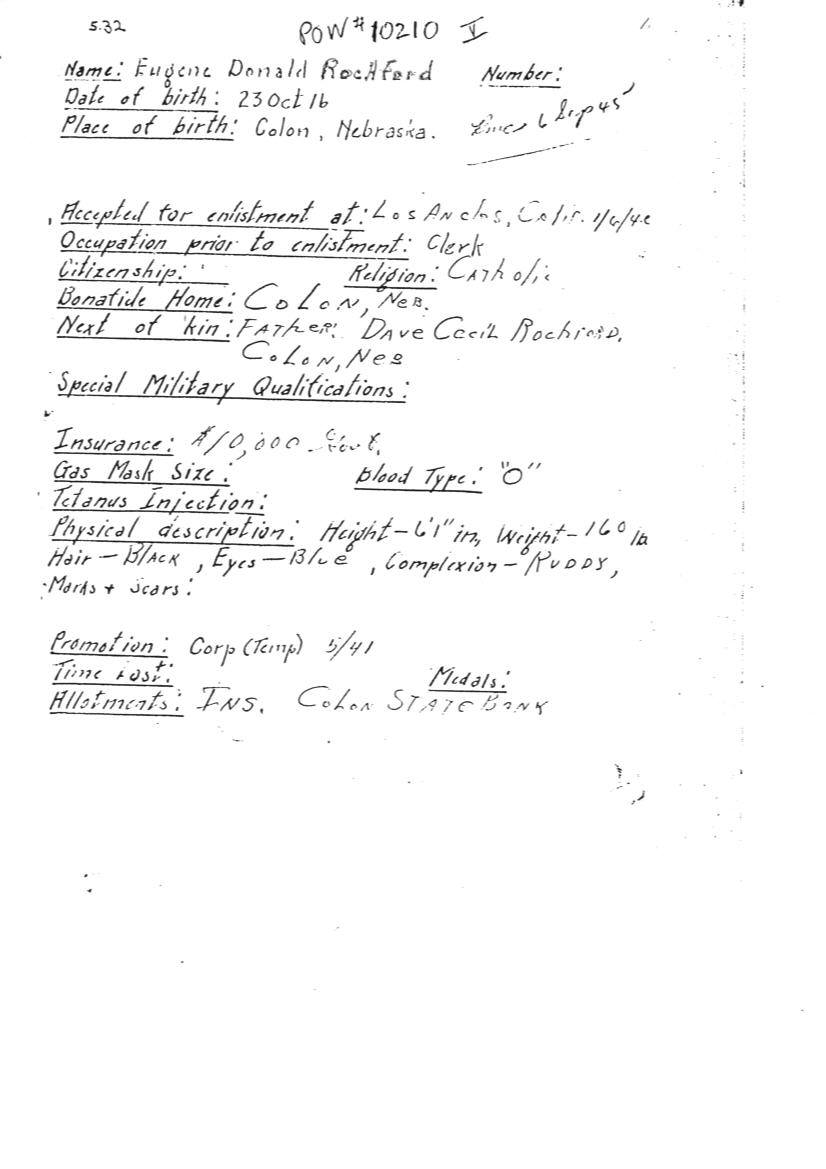 5.32
POW # 10210 V
Name: Eugene Donald Rochford Number:
Date of birth: 23 Oct 16
Place of birth: Colon, Nebraska. 6 Sep 45
Accepted for enlistment at: Los Ancles, Calif. 1/6/40
Occupation prior to enlistment: Clerk
Citizenship: Religion: Catholic
Bonafide Home: Colon, Neb.
Next of kin: Father: Dave Cecil Rochford,
Colon, Neb
Special Military Qualifications:
Insurance: $10,000 Govt.
Gas Mask Size: Blood Type: "O"
Tetanus Injection:
Physical description: Height - 6'1" in, Weight - 160 lb
Hair - Black, Eyes - Blue, Complexion - Ruddy,
Marks + Scars:
Promotion: Corp (Temp) 5/41
Time Lost: Medals:
Allotments: Ins. Colon State Bank